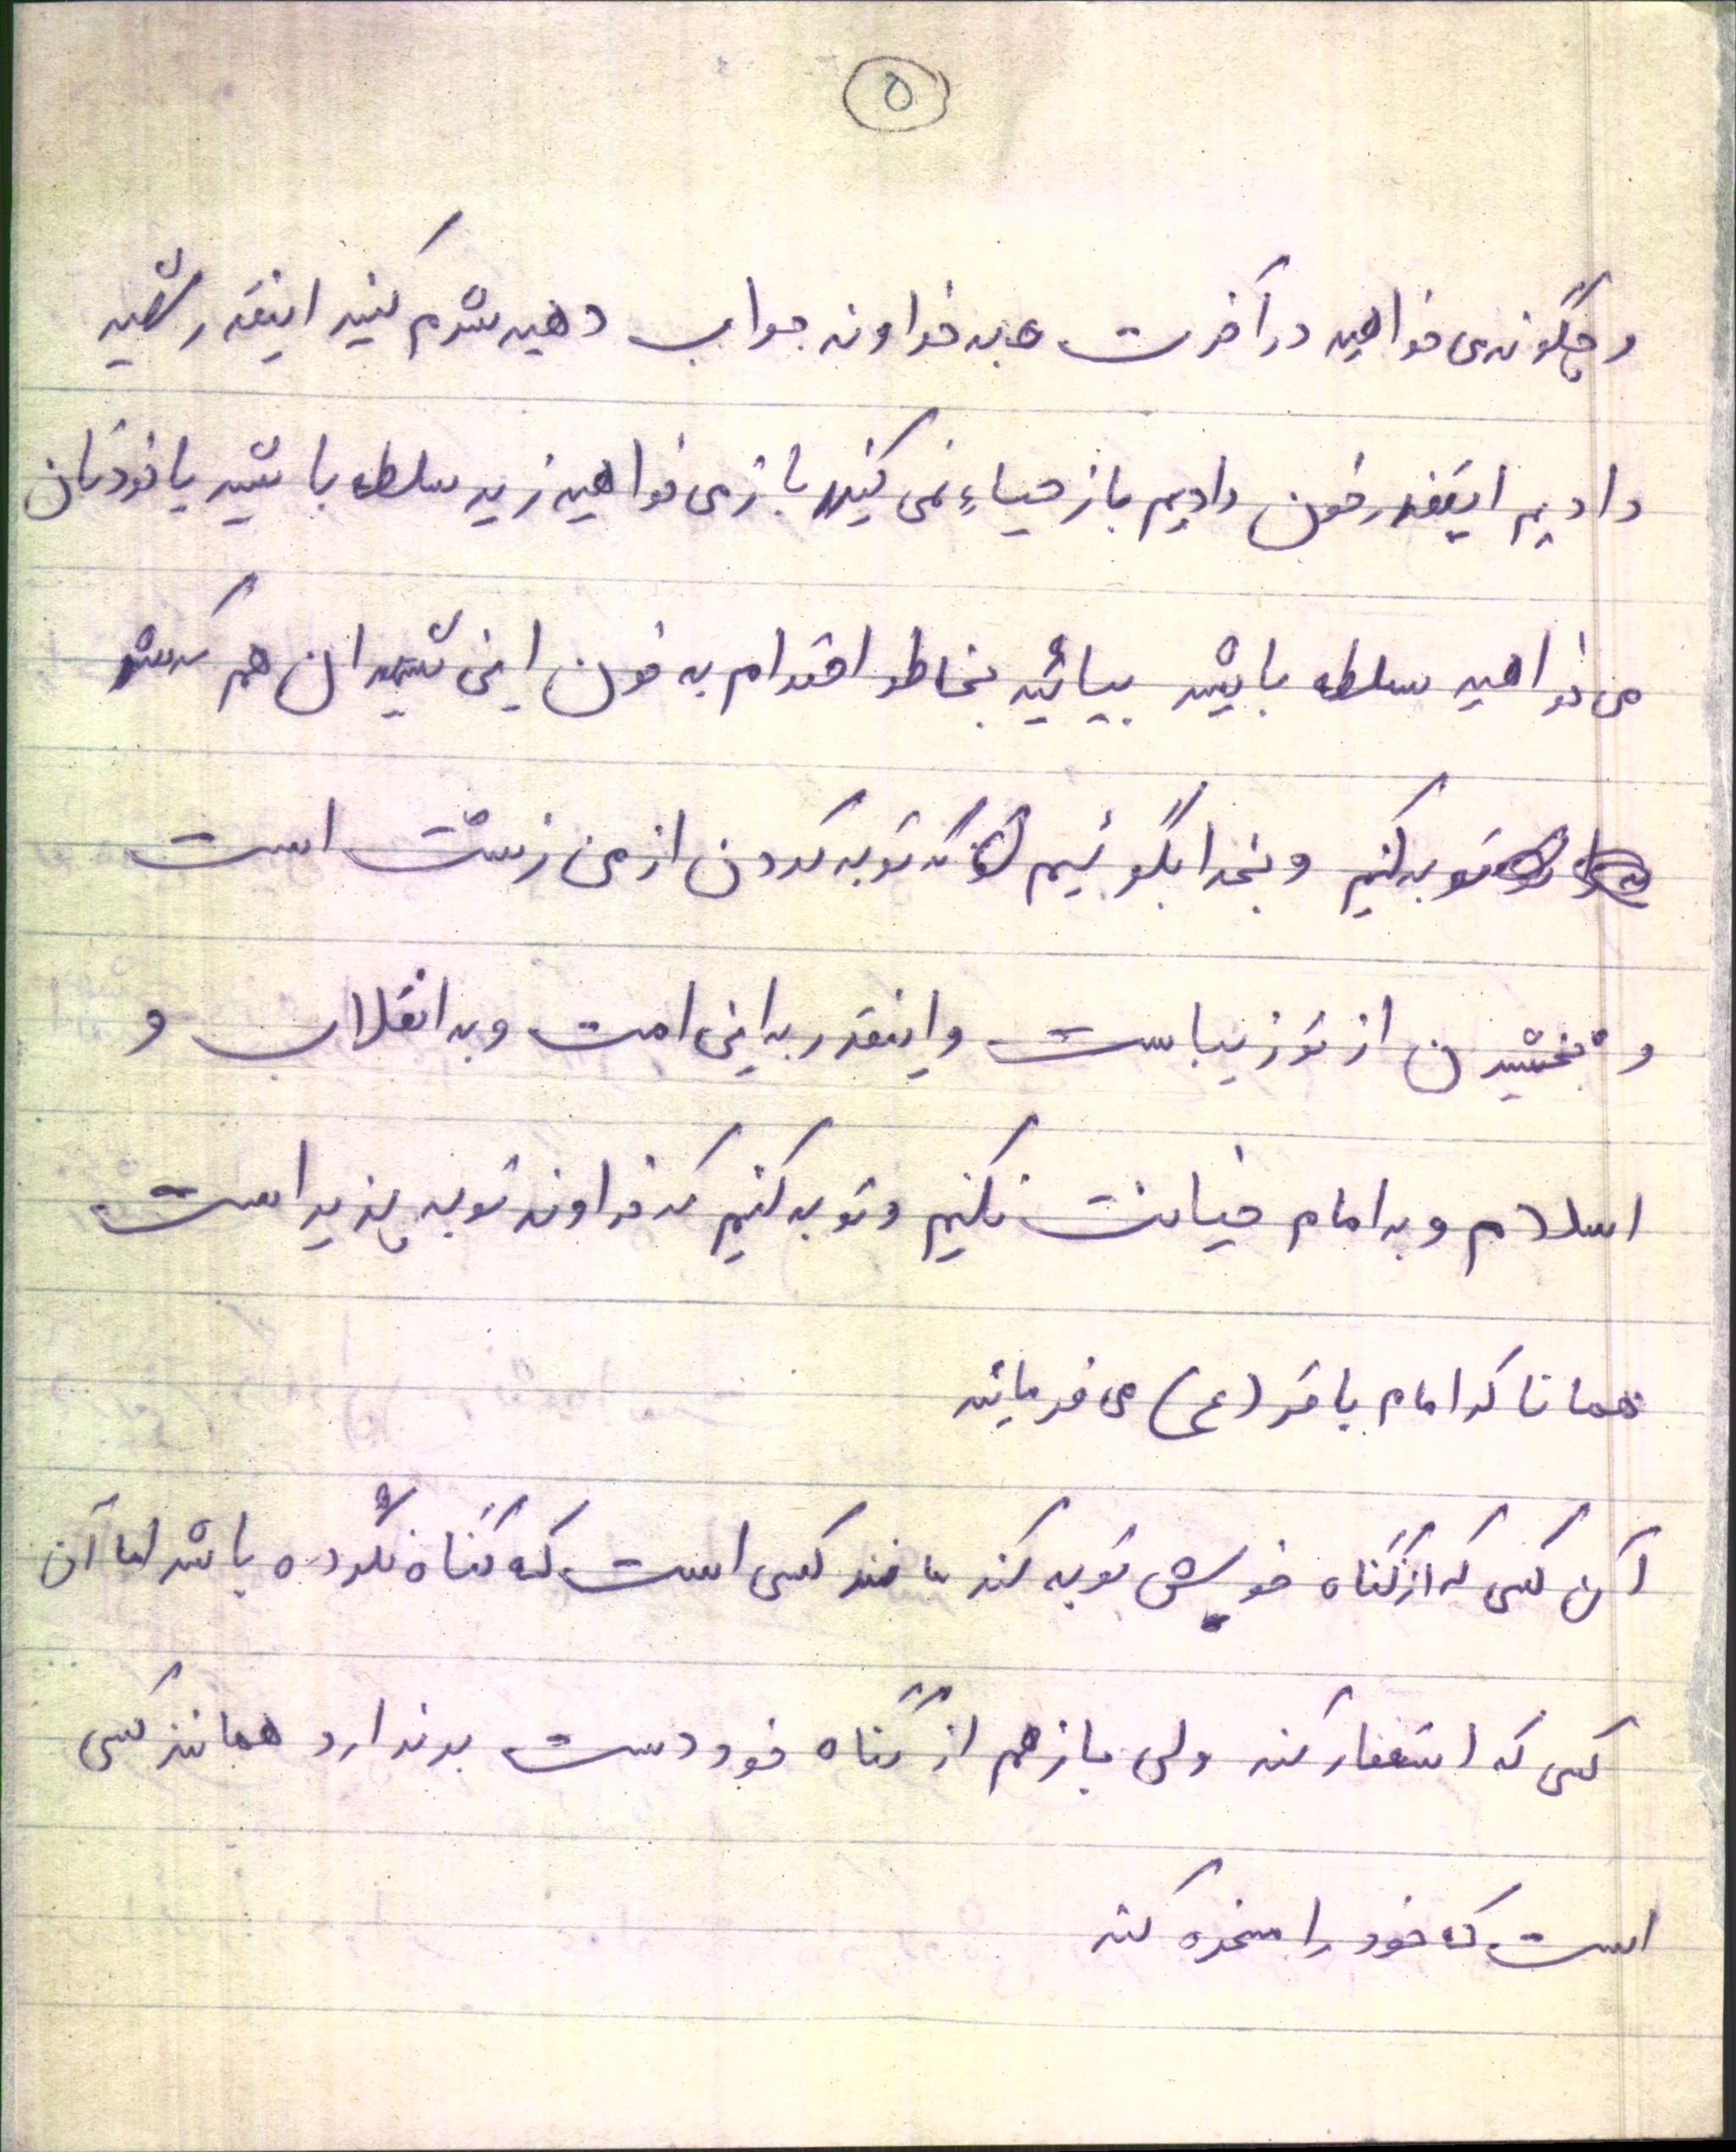 ۵
و چگونه می خواهید در آخرت به خداوند جواب دهید شرم کنید اینقدر شهید
دادیم اینقدر خون دادیم باز حیاء نمی کنید باز می خواهید زیر سلطه باشید یا خودتان
می خواهید سلطه باشید بیائید بخاطر احترام به خون این شهیدان هم که شده
توبه کنیم و بخدا بگوئیم که توبه کردن از من زشت است
و بخشیدن از تو زیباست و اینقدر به این امت و به انقلاب و
اسلام و به امام خیانت نکنیم و توبه کنیم که خداوند توبه پذیر است
همانا که امام باقر (ع) می فرمایند
آن کسی که از گناه خویش توبه کند مانند کسی است که گناه نکرده باشد اما آن
کسی که استغفار کند ولی باز هم از گناه خود دست برندارد همانند کسی
است که خود را مسخره کند